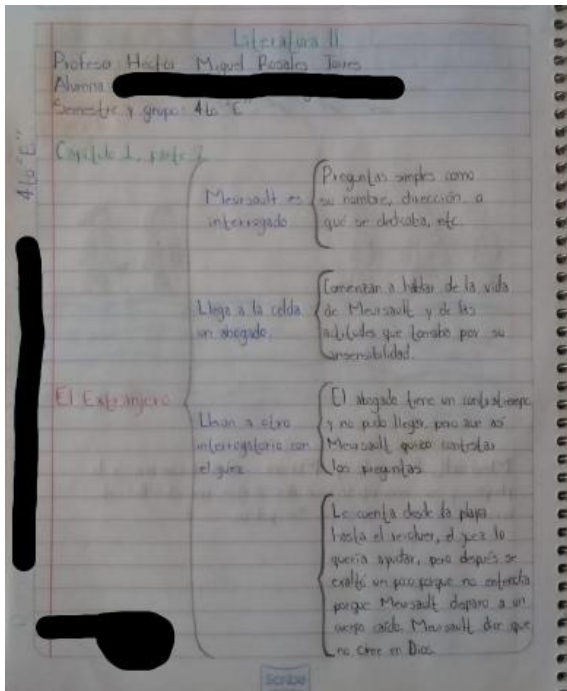 Literatura II
Profesor: Hector Miguel Rosales
Alumna:
Semestre y grupo: 4to "E"
4to "E"
Capitulo 1, parte 2
El Extranjero
Meursault es
interrogado
Preguntas simples como
su nombre, dirección, a
que se dedicaba, etc
Llega a la celda
un abogado.
Comienzan a hablar de la vida
de Meursault y de las
actitudes que tomaba por su
insensibilidad.
a otro
interrogatorio con
el juez
El abogado tiene un contratiempo
y no pudo llegar, pero aun así
Meursault quizo contestar
las preguntas
Le cuenta desde la playa
hasta el revolver, el juez lo
quería ayudar, pero después se
exaltó un poco porque no entendía
porque Meursault disparo a un
cuerpo caído. Meursault dice que
no cree en Dios.
Scribe